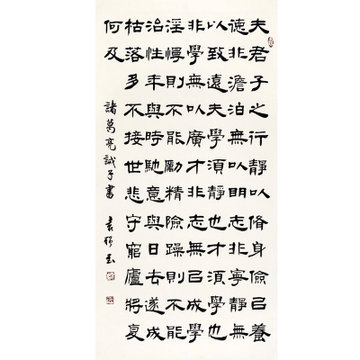 夫君子之行靜以脩身儉㠯養
德非澹泊無以明志非寧靜無
以致遠夫學須靜也才須學也
非學無以廣才非志無㠯成學
淫慢則不能勵精險躁則不能
治性年與時馳意與日去遂成
枯落多不接世悲守窮廬將復
何及
諸葛亮誡子書